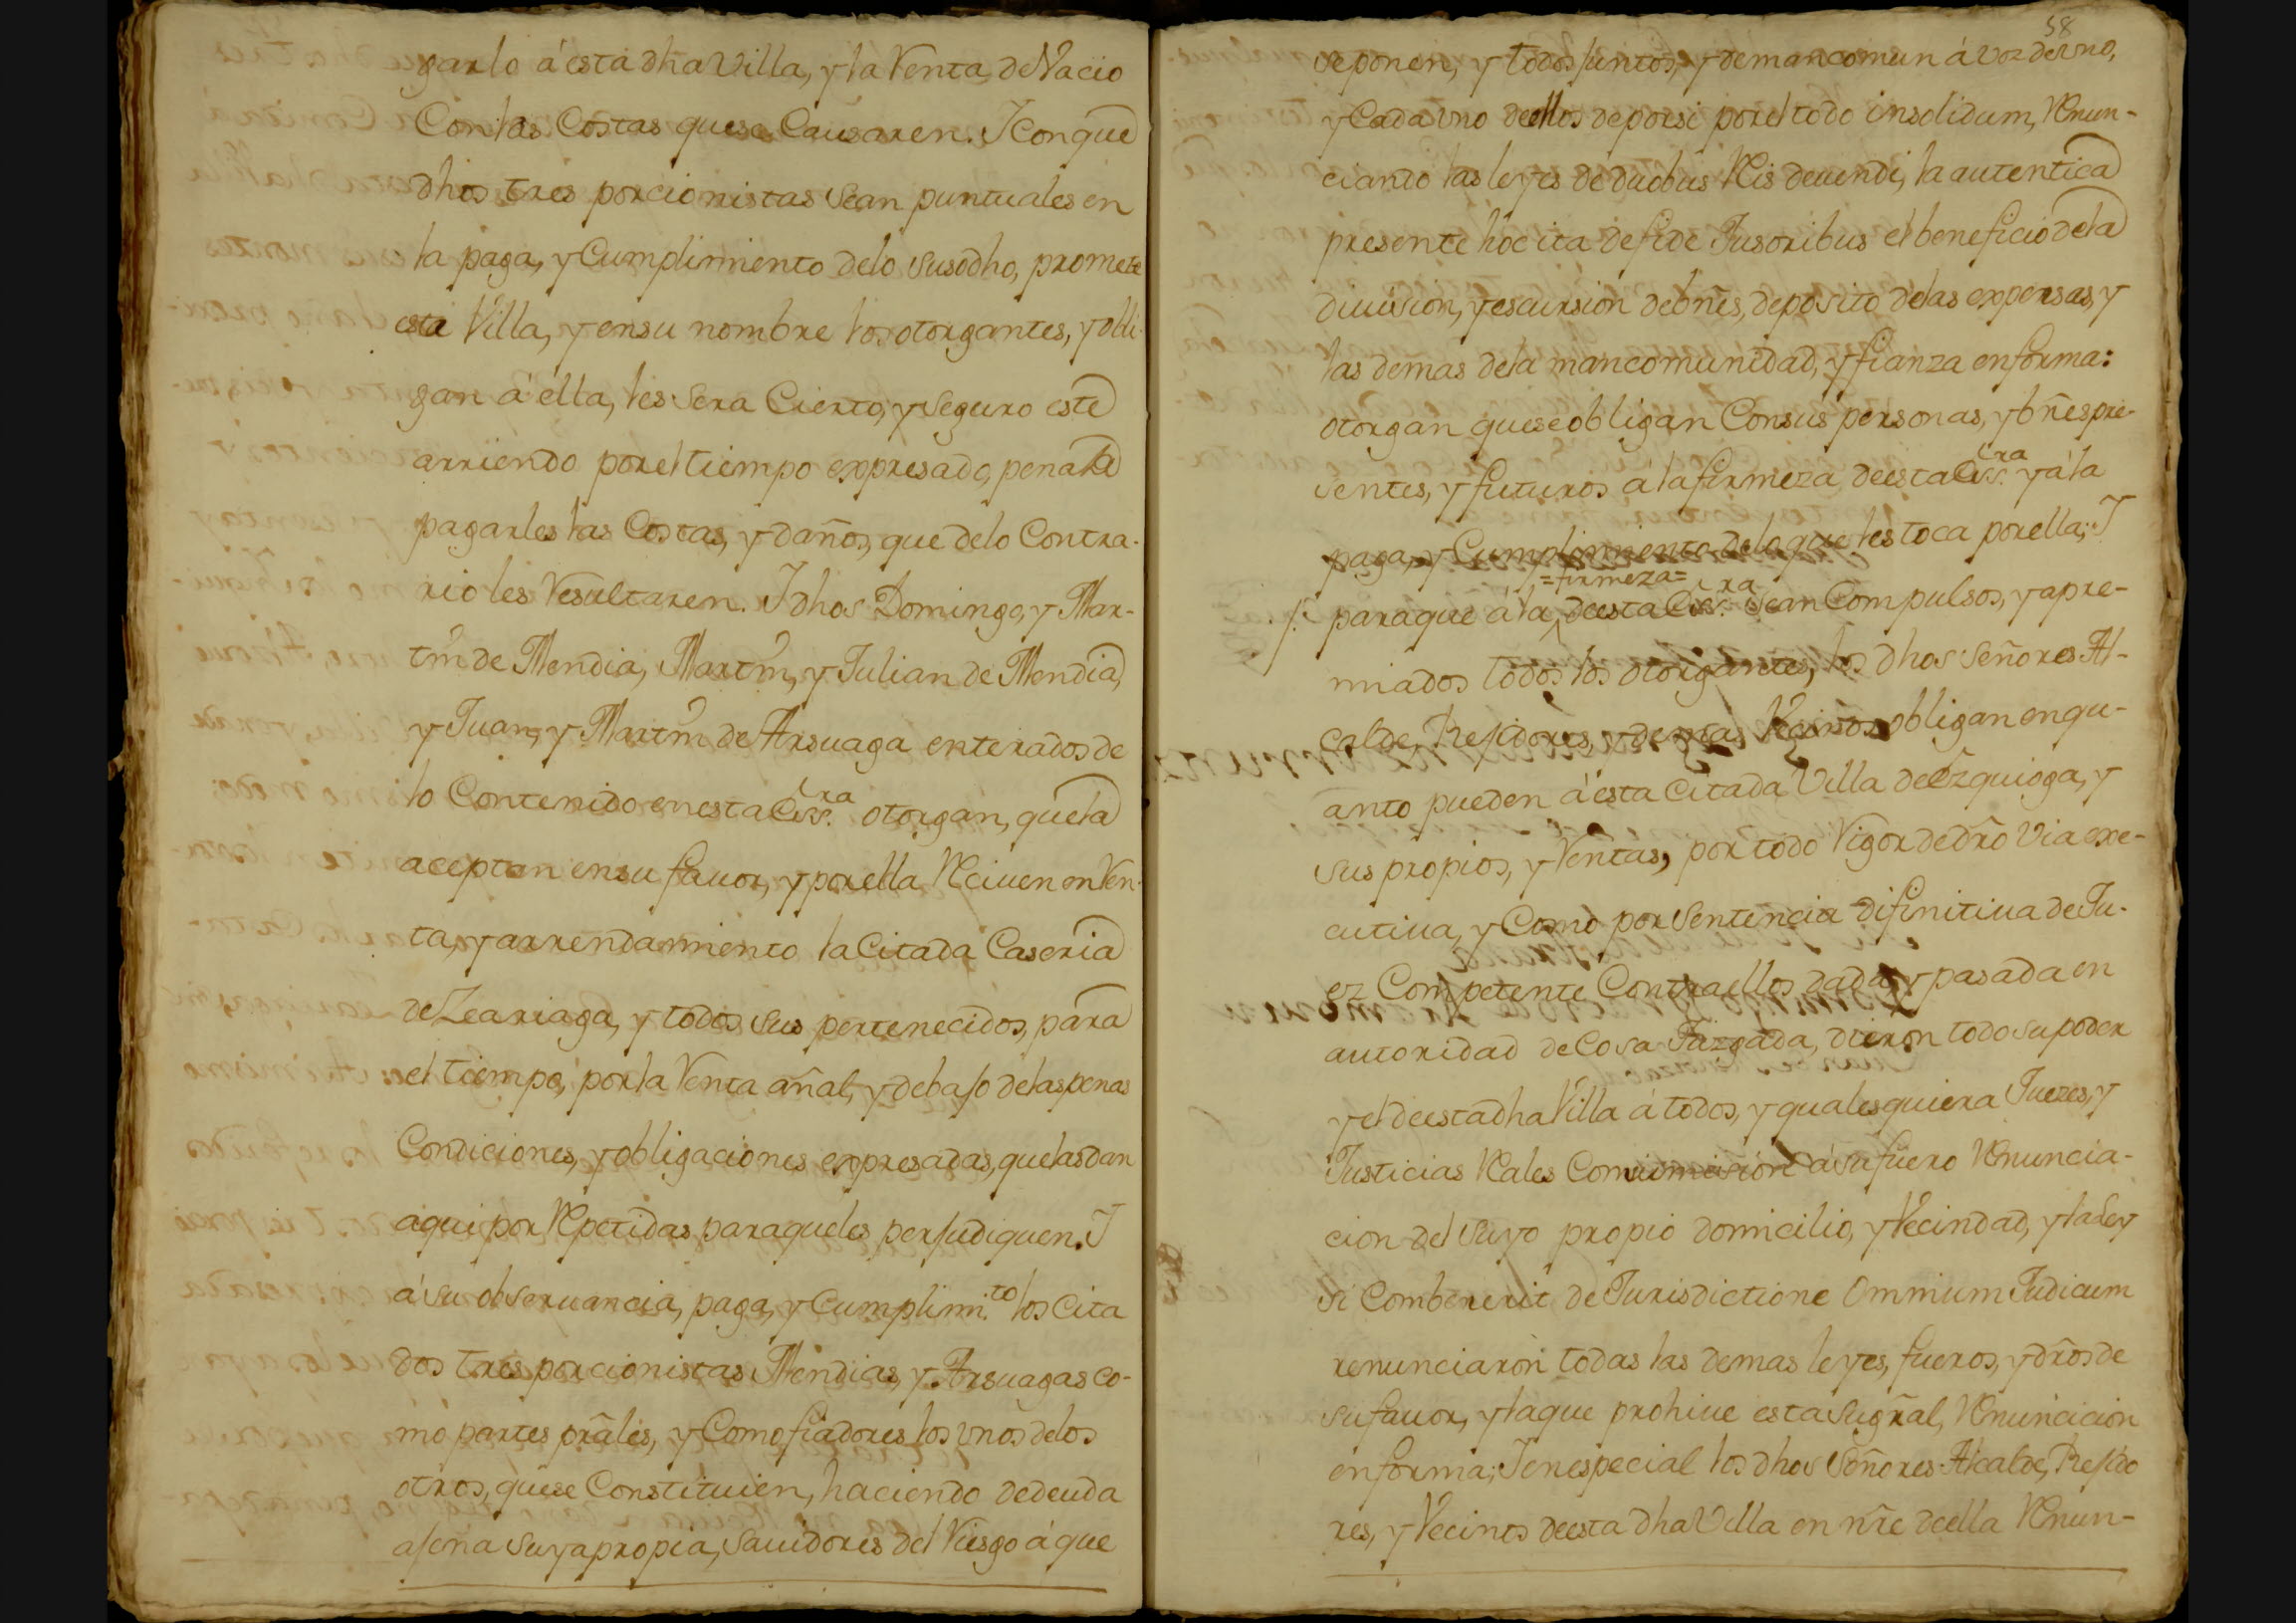 garlo á esta dha Villa, y la Venta, de Vacio
Con las Costas que se Causaren. I con que
dhos tres porcionistas sean puntuales en
la paga, y Cumplimiento delo susodho, promete
esta Villa, y en su nombre los otorgantes, y obli-
gan á ella, les sera Cierto, y seguro este
arriendo por el tiempo expresado, pena de
pagarles las Costas, y daños, que delo Contra-
rio les Resultaren. I dhos Domingo, y Mar-
tin de Mendia, Martin, y Julian de Mendia,
y Juan, y Martin de Arsuaga enterados de
lo Contenido en esta Ess.ra otorgan, que la
aceptan en su fauor, y por ella Reciuen en Ven-
ta, y arrendamiento la Citada Caseria
de Leariaga, y todos sus pertenecidos, para
el tiempo, por la Venta añal, y debajo de las penas
Condiciones, y obligaciones expresadas, que las dan
aqui por Repetidas para que les perjudiquen. I
á su obseruancia, paga, y Cumplimi.to los Cita
dos tres porcionistas Mendias, y Arsuagas co-
mo partes prãles, y Como fiadores los unos delos
otros, que se Constituien, haciendo de deuda
ajena suya propia, sauidores del Riesgo á que
58
se ponen, y todos juntos, y demancomun á voz de vno,
y Cada vno de ellos de por si por el todo insolidum, Renun-
ciando las leyes de duobus Reis deuendi, la autentica
presente hoc ita de fide Jusoribus el beneficio dela
diuision, y escursion de bñes, deposito de las expensas, y
las demas dela mancomunidad, y fianza en forma:
otorgan que se obligan Con sus personas, y bñes pre-
sentes, y futuros á la firmeza de esta Ess.ra y á la
paga, y Cumplimiento delo que les toca por ella; I
=firmeza=
para que á la de esta Ess.ra sean Compulsos, y apre-
miados todos los otorgantes, los dhos Señores Al-
calde, Rejidores, y demas Vecinos obligan en qu-
anto pueden á esta Citada Villa de Ezquioga, y
sus propios, y Rentas, por todo Vigor de dro Via exe-
cutiua, y Como por sentencia difinitiua de Ju-
ez Competente Contra ellos dada y pasada en
autoridad de Cosa Juzgada, dieron todo su poder
y el de esta dha Villa á todos, y qualesquiera Juezes, y
Justicias Reales Con sumision á su fuero Renuncia-
cion del suyo propio domicilio, y Vecindad, y la ley
si Combenerit de Jurisdictione Omnium Judicum
renunciaron todas las demas leyes, fueros, y dros de
su fauor, y la que prohiue esta su gñal, Renuncicion
en forma; I en especial los dhos Señores Alcalde, Rejido
res, y Vecinos de esta dha Villa en nre de ella Renun-